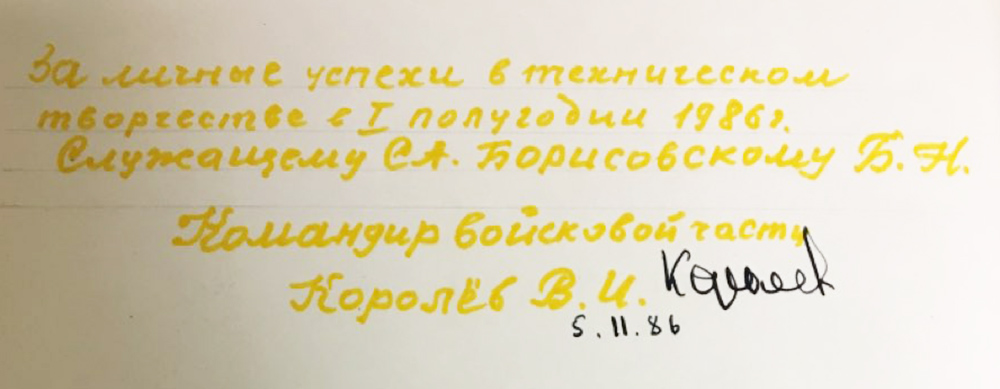 За личные успехи в техническом
творчестве в I полугодии 1986г.
Служащему СА. Борисовскому Б.Н.
Командир войсковой части
Королёв В.И. Королев
5.11.86